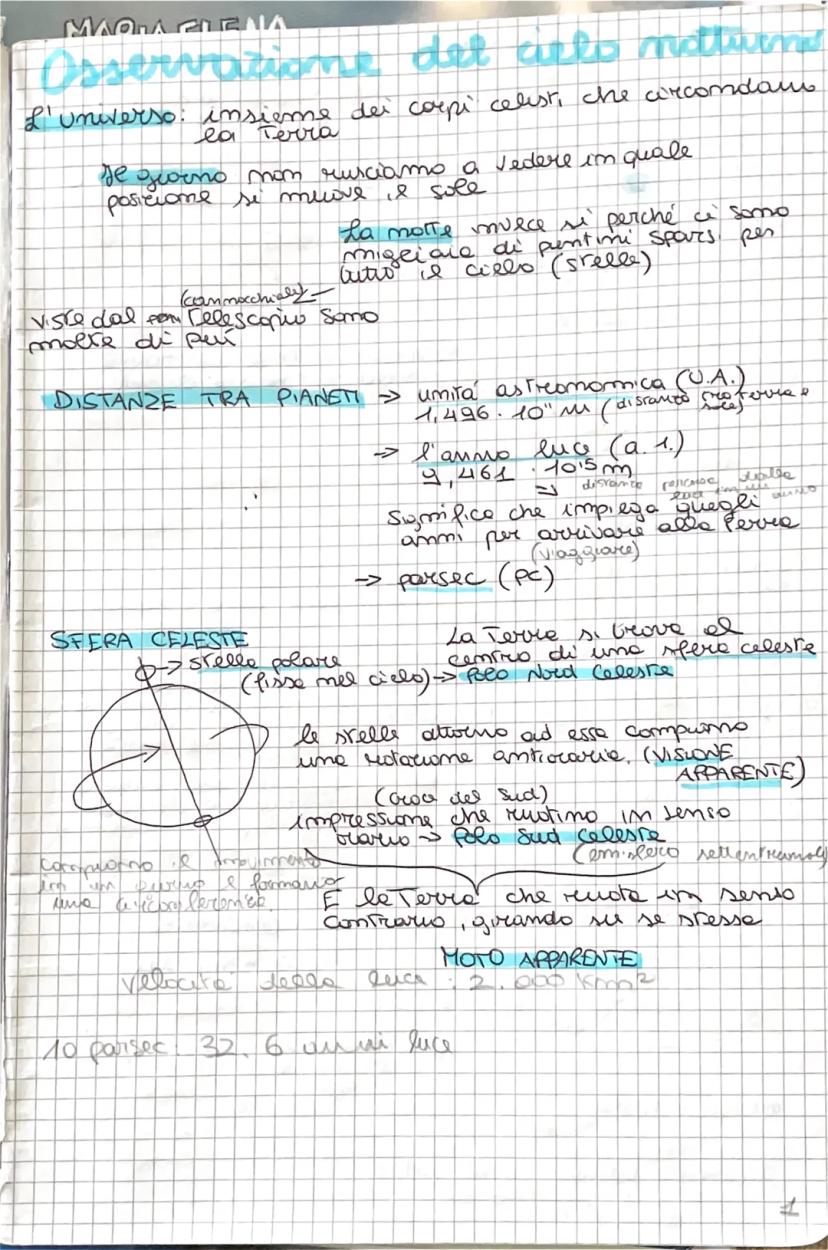 MARIA ELENA
Osservazione del cielo notturno
L'universo: insieme dei corpi celesti che circondano
la Terra
Il giorno non riusciamo a vedere in quale
posizione si muove il sole
La notte invece si perché ci sono
migliaia di puntini sparsi per
tutto il cielo (stelle)
(cannocchiale)
viste dal Telescopio sono
molte di più
DISTANZE TRA PIANETI → unità astronomica (U.A.)
1,496 · 10¹¹ m (distanza tra terra e
sole)
→ l'anno luce (a.l.)
9,461 · 10¹⁵ m
⇒ distanza percorsa dalla
luce in un anno
Significa che impiega quegli
anni per arrivare alla Terra
(viaggiare)
→ parsec (pc)
SFERA CELESTE
→ stella polare
(fissa nel cielo) → Polo Nord Celeste
La Terra si trova al
centro di una sfera celeste
le stelle attorno ad essa compiono
una rotazione antioraria. (VISIONE
APPARENTE)
(croce del Sud)
impressione che ruotino in senso
orario → Polo Sud Celeste
(emisfero settentrionale)
compiono il movimento
in un giorno e formano
una circonferenza
È la Terra che ruota in senso
contrario, girando su se stessa
MOTO APPARENTE
Velocità della luce : 2.000 km²
10 parsec: 32.6 anni luce
1